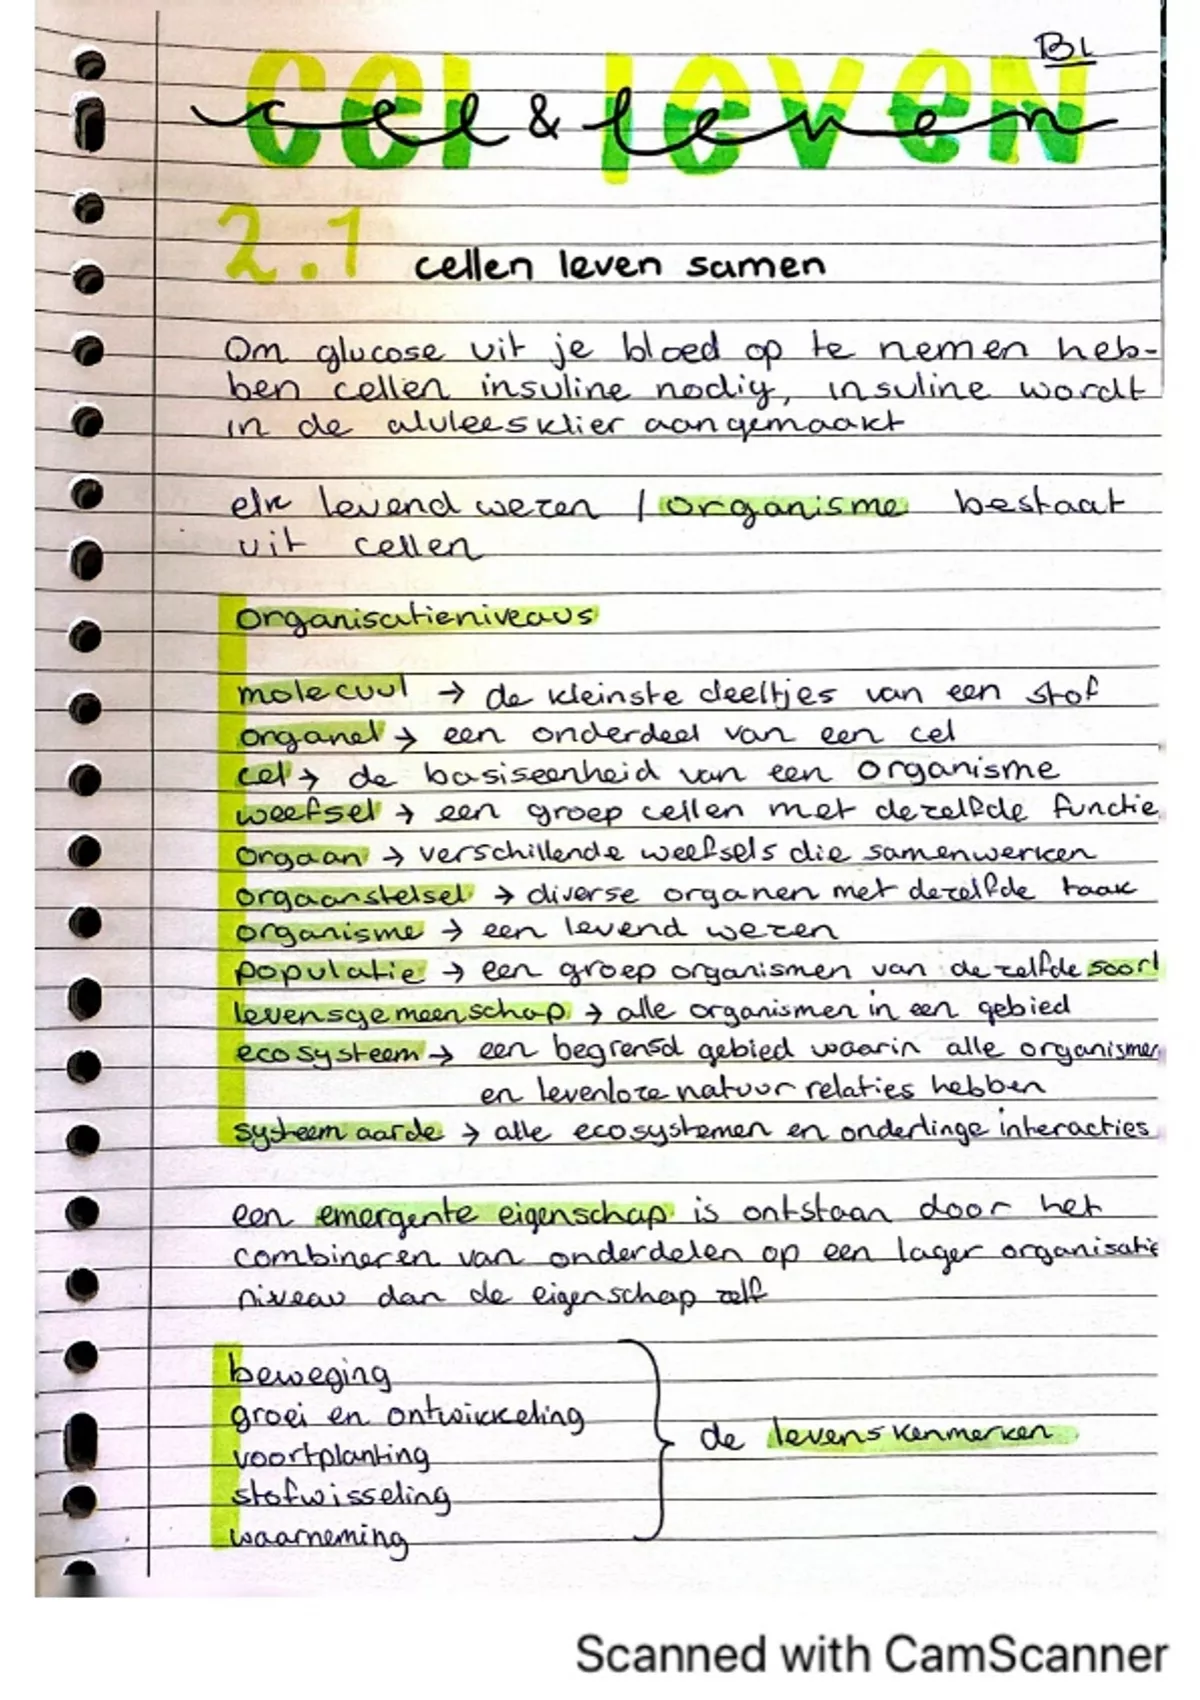 B1
cel & leven
2.1 cellen leven samen
Om glucose uit je bloed op te nemen heb-
ben cellen insuline nodig, insuline wordt
in de alvleesklier aangemaakt
elk levend wezen / organisme bestaat
uit cellen
organisatieniveaus
molecuul → de kleinste deeltjes van een stof
organel → een onderdeel van een cel
cel → de basiseenheid van een organisme
weefsel → een groep cellen met dezelfde functie
orgaan → verschillende weefsels die samenwerken
orgaanstelsel → diverse organen met dezelfde taak
organisme → een levend wezen
populatie → een groep organismen van dezelfde soort
levensgemeenschap → alle organismen in een gebied
ecosysteem → een begrensd gebied waarin alle organismen
en levenloze natuur relaties hebben
systeem aarde → alle ecosystemen en onderlinge interacties
een emergente eigenschap is ontstaan door het
combineren van onderdelen op een lager organisatie
niveau dan de eigenschap zelf
beweging
groei en ontwikkeling
voortplanting
stofwisseling
waarneming
de levenskenmerken
Scanned with CamScanner